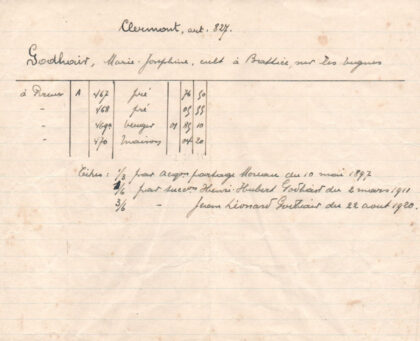 Clermont, art. 827.
Godhair, Marie-Josephine, cult à sur les
à A 467 pré 76 50
" 468 pré 05 55
" 469a verger 01 85 10
" 470 maison 04 20
Titres: 1/3 par acq. partage Moreau du 10 mai 1897
1/6 par succ. Henri-Hubert Godhair du 2 mars 1911
3/6 " Jean Léonard Godhair du 22 aout 1920.